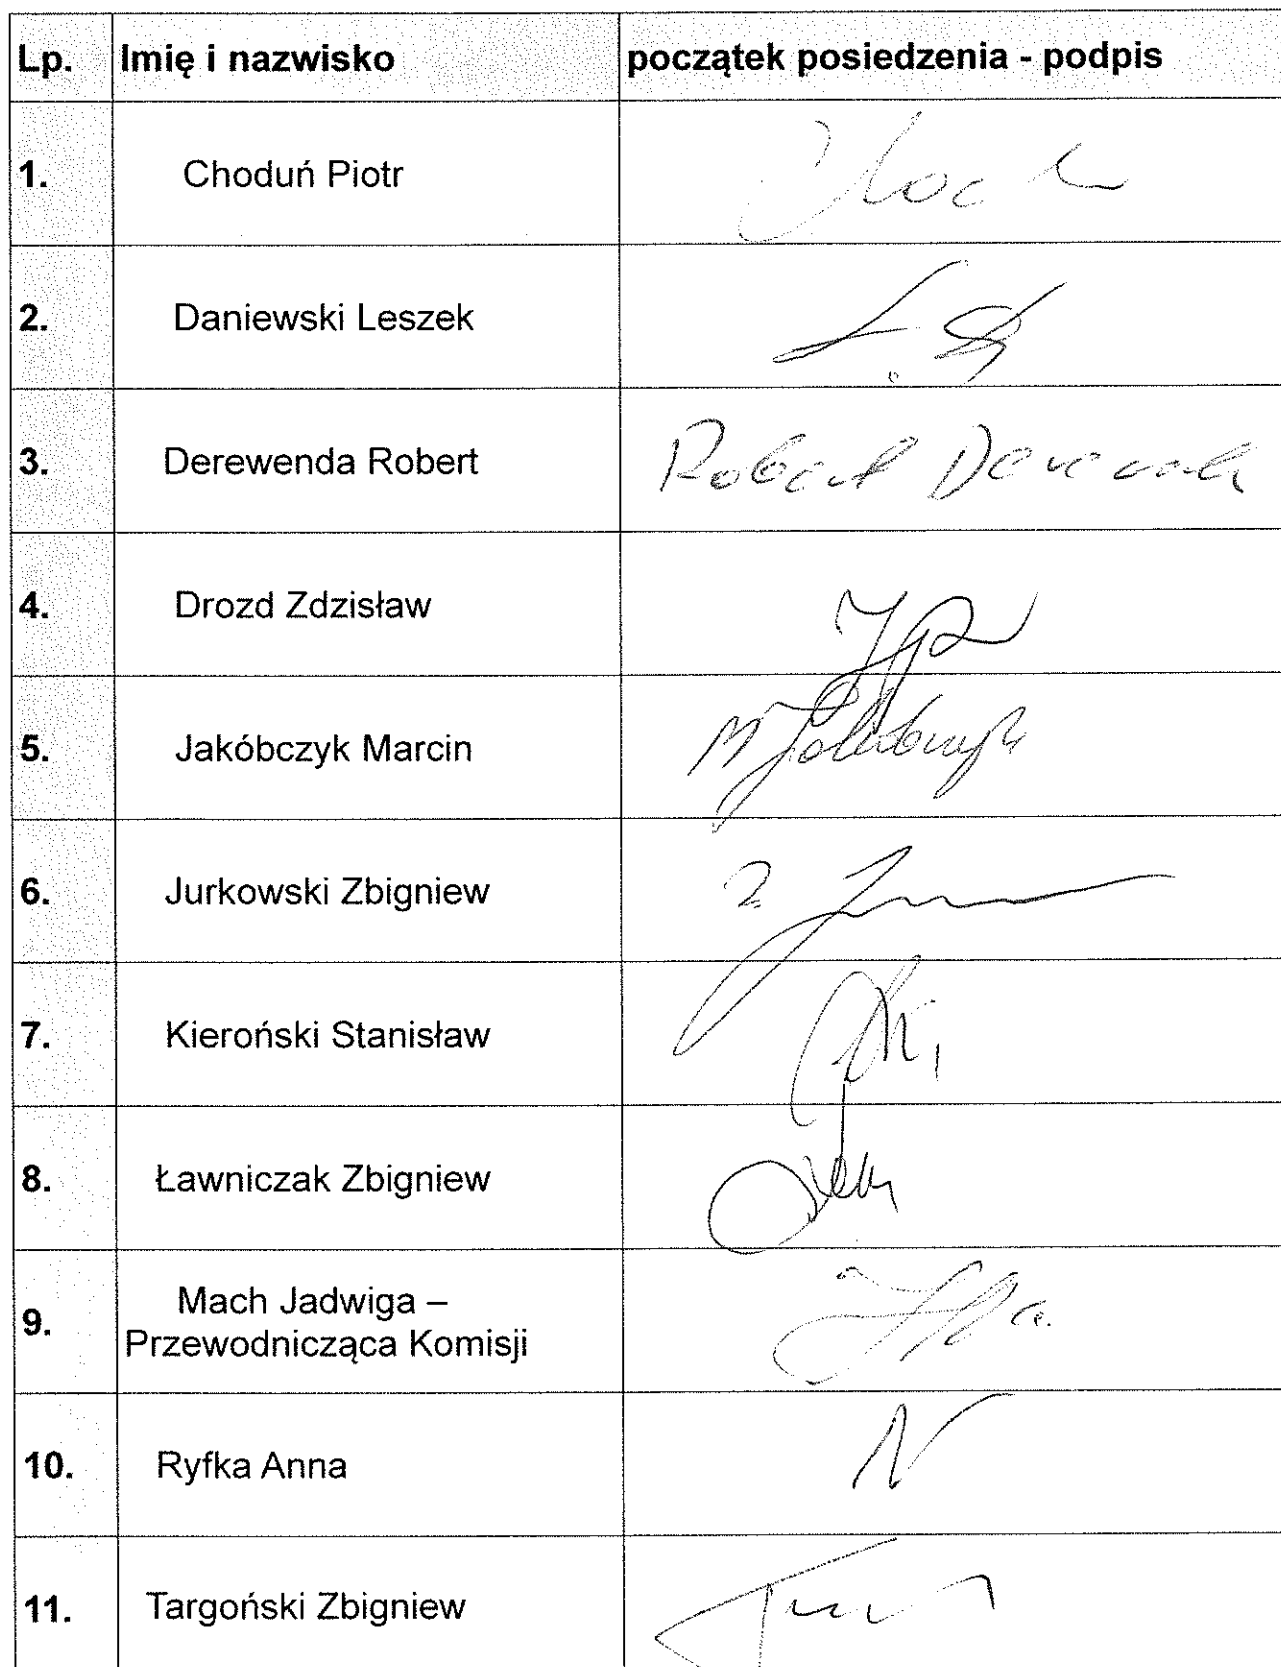 Lp. Imię i nazwisko początek posiedzenia - podpis
1. Choduń Piotr
2. Daniewski Leszek
3. Derewenda Robert Robert Derewenda
4. Drozd Zdzisław
5. Jakóbczyk Marcin M Jakóbczyk
6. Jurkowski Zbigniew
7. Kieroński Stanisław
8. Ławniczak Zbigniew
9. Mach Jadwiga –
Przewodnicząca Komisji
10. Ryfka Anna
11. Targoński Zbigniew